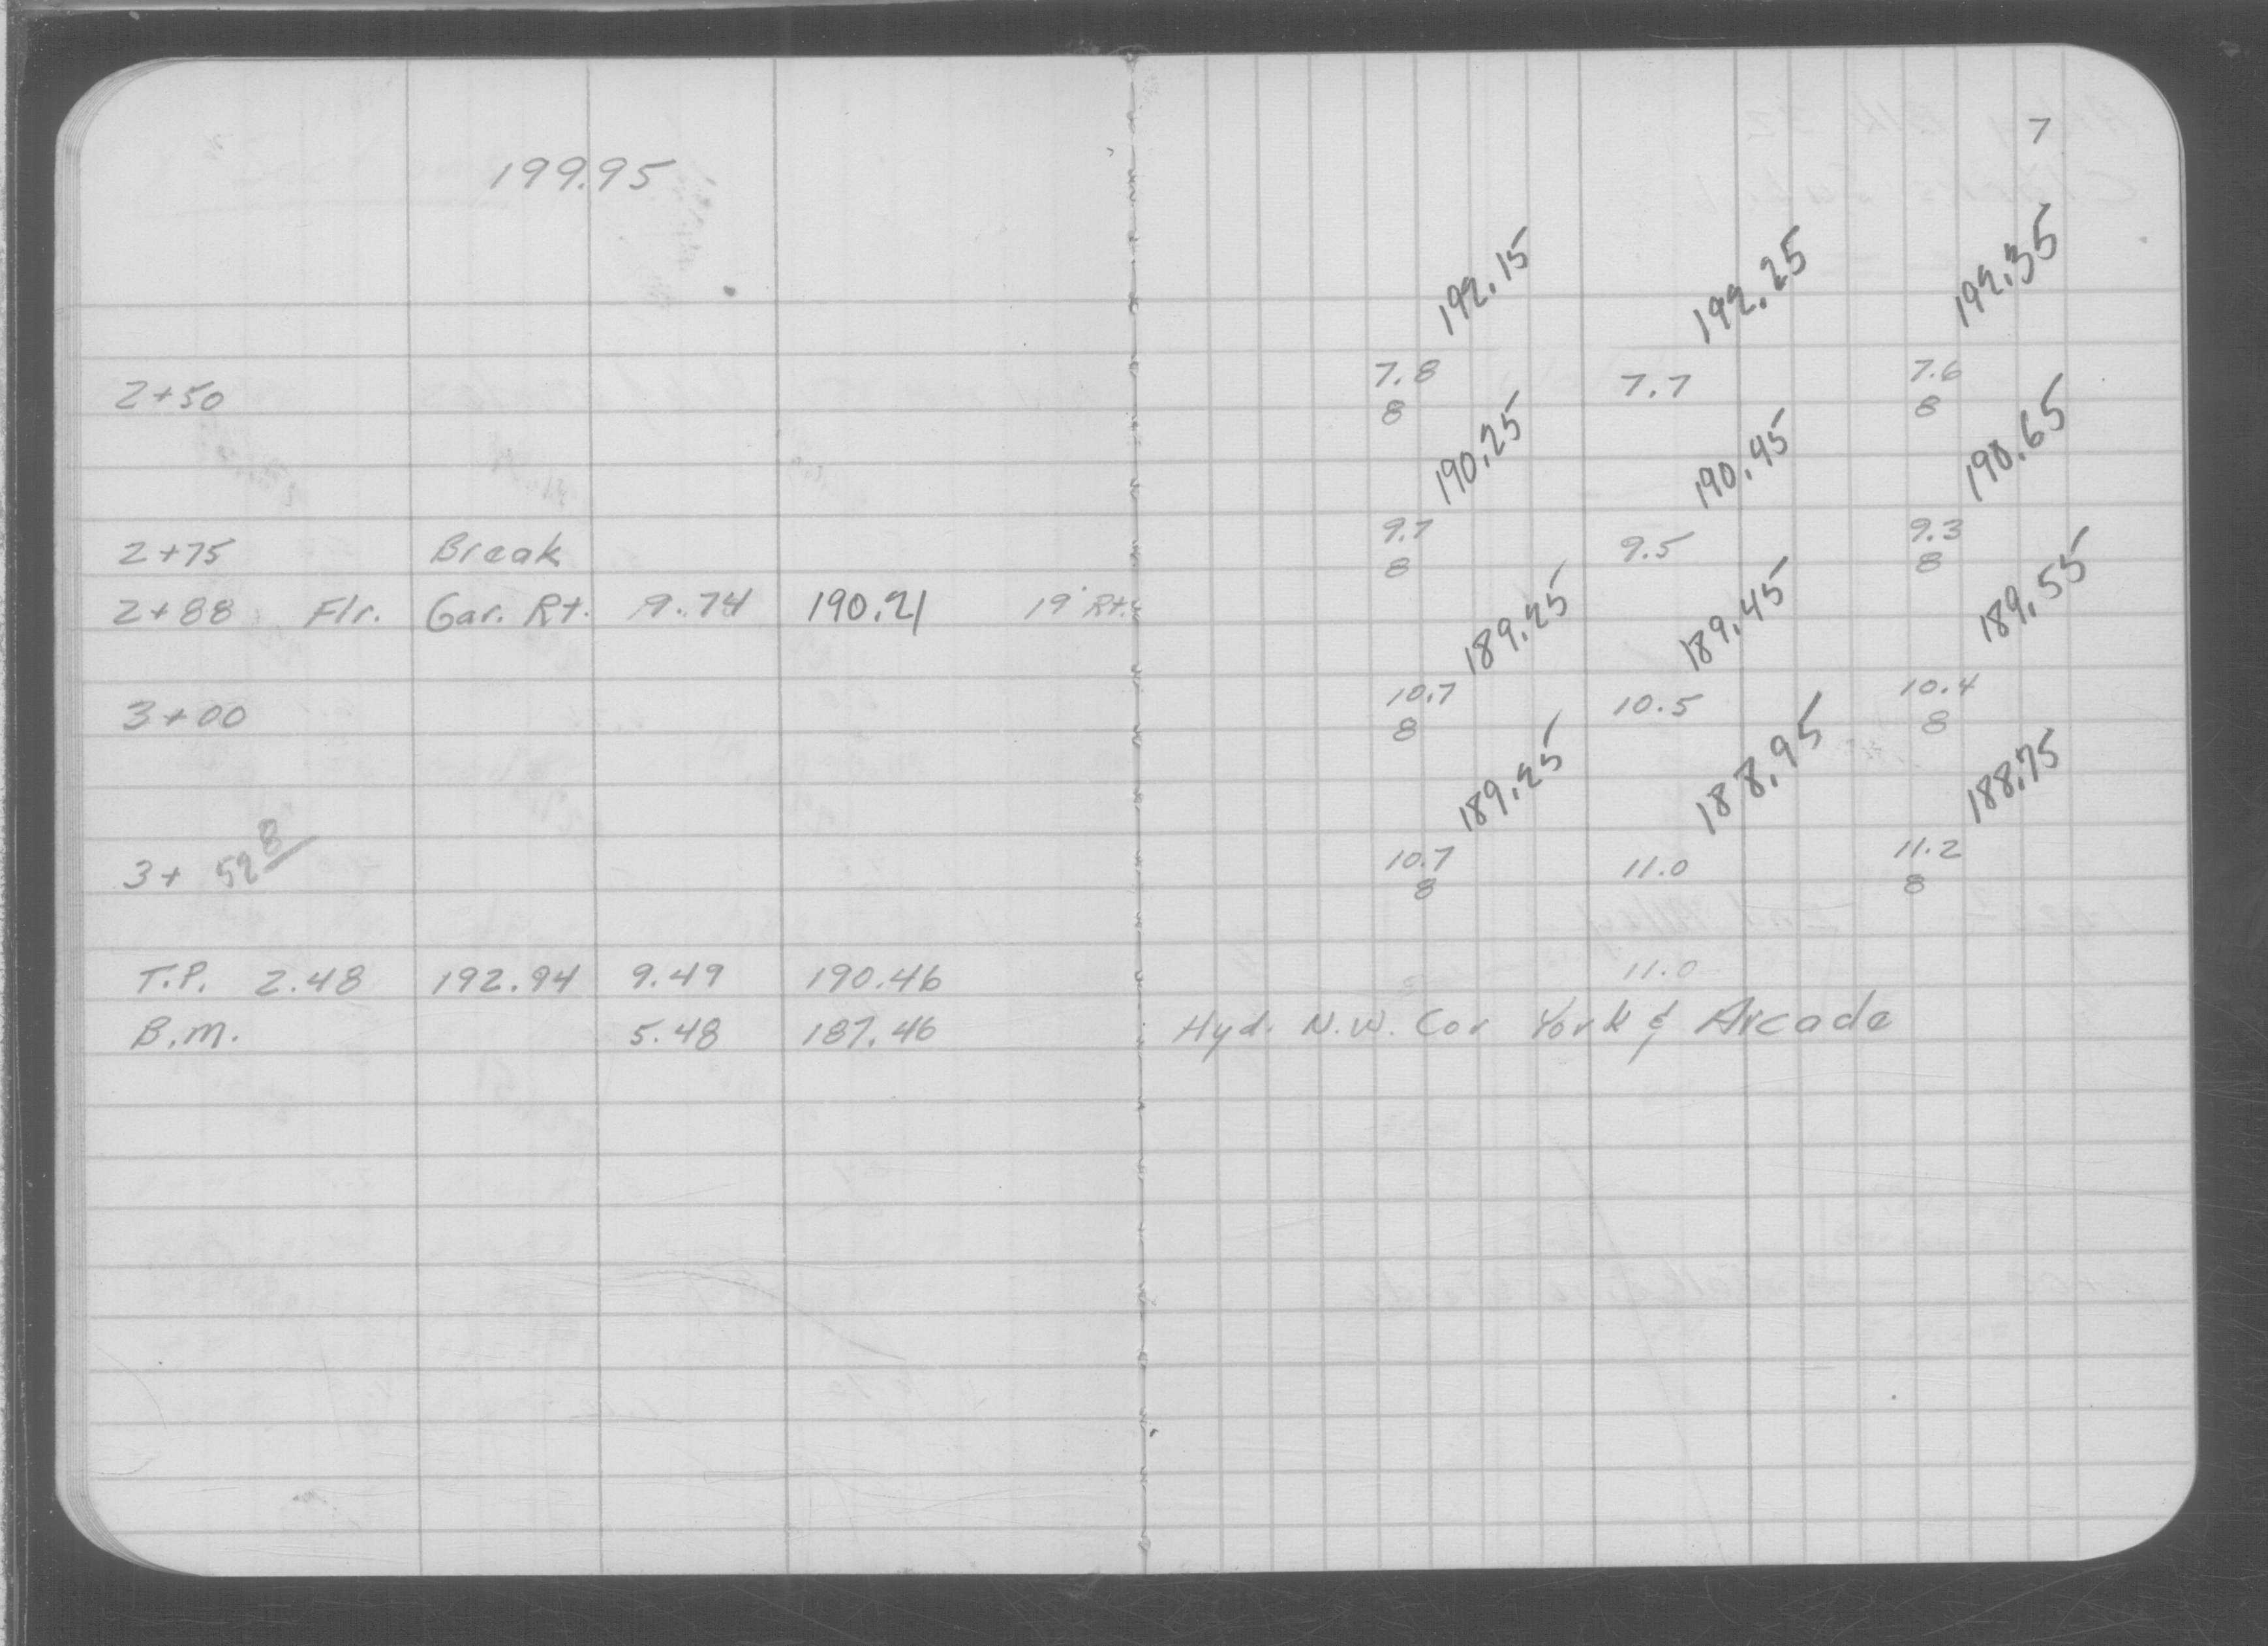 7
199.95
192.15 192.25 192.35
2+50 7.8 7.7 7.6
8 8
190.25 190.45 190.65
2+75 Break 9.7 9.5 9.3
8 8
2+88 Flr. Gar. Rt. 9.74 190.21 19' Rt.
189.25 189.45 189.55
3+00 10.7 10.5 10.4
8 8
189.25 188.95 188.75
3+ 52 8 10.7 11.0 11.2
8 8
T.P. 2.48 192.94 9.49 190.46 11.0
B.M. 5.48 187.46 Hyd. N.W. Cor York & Arcade